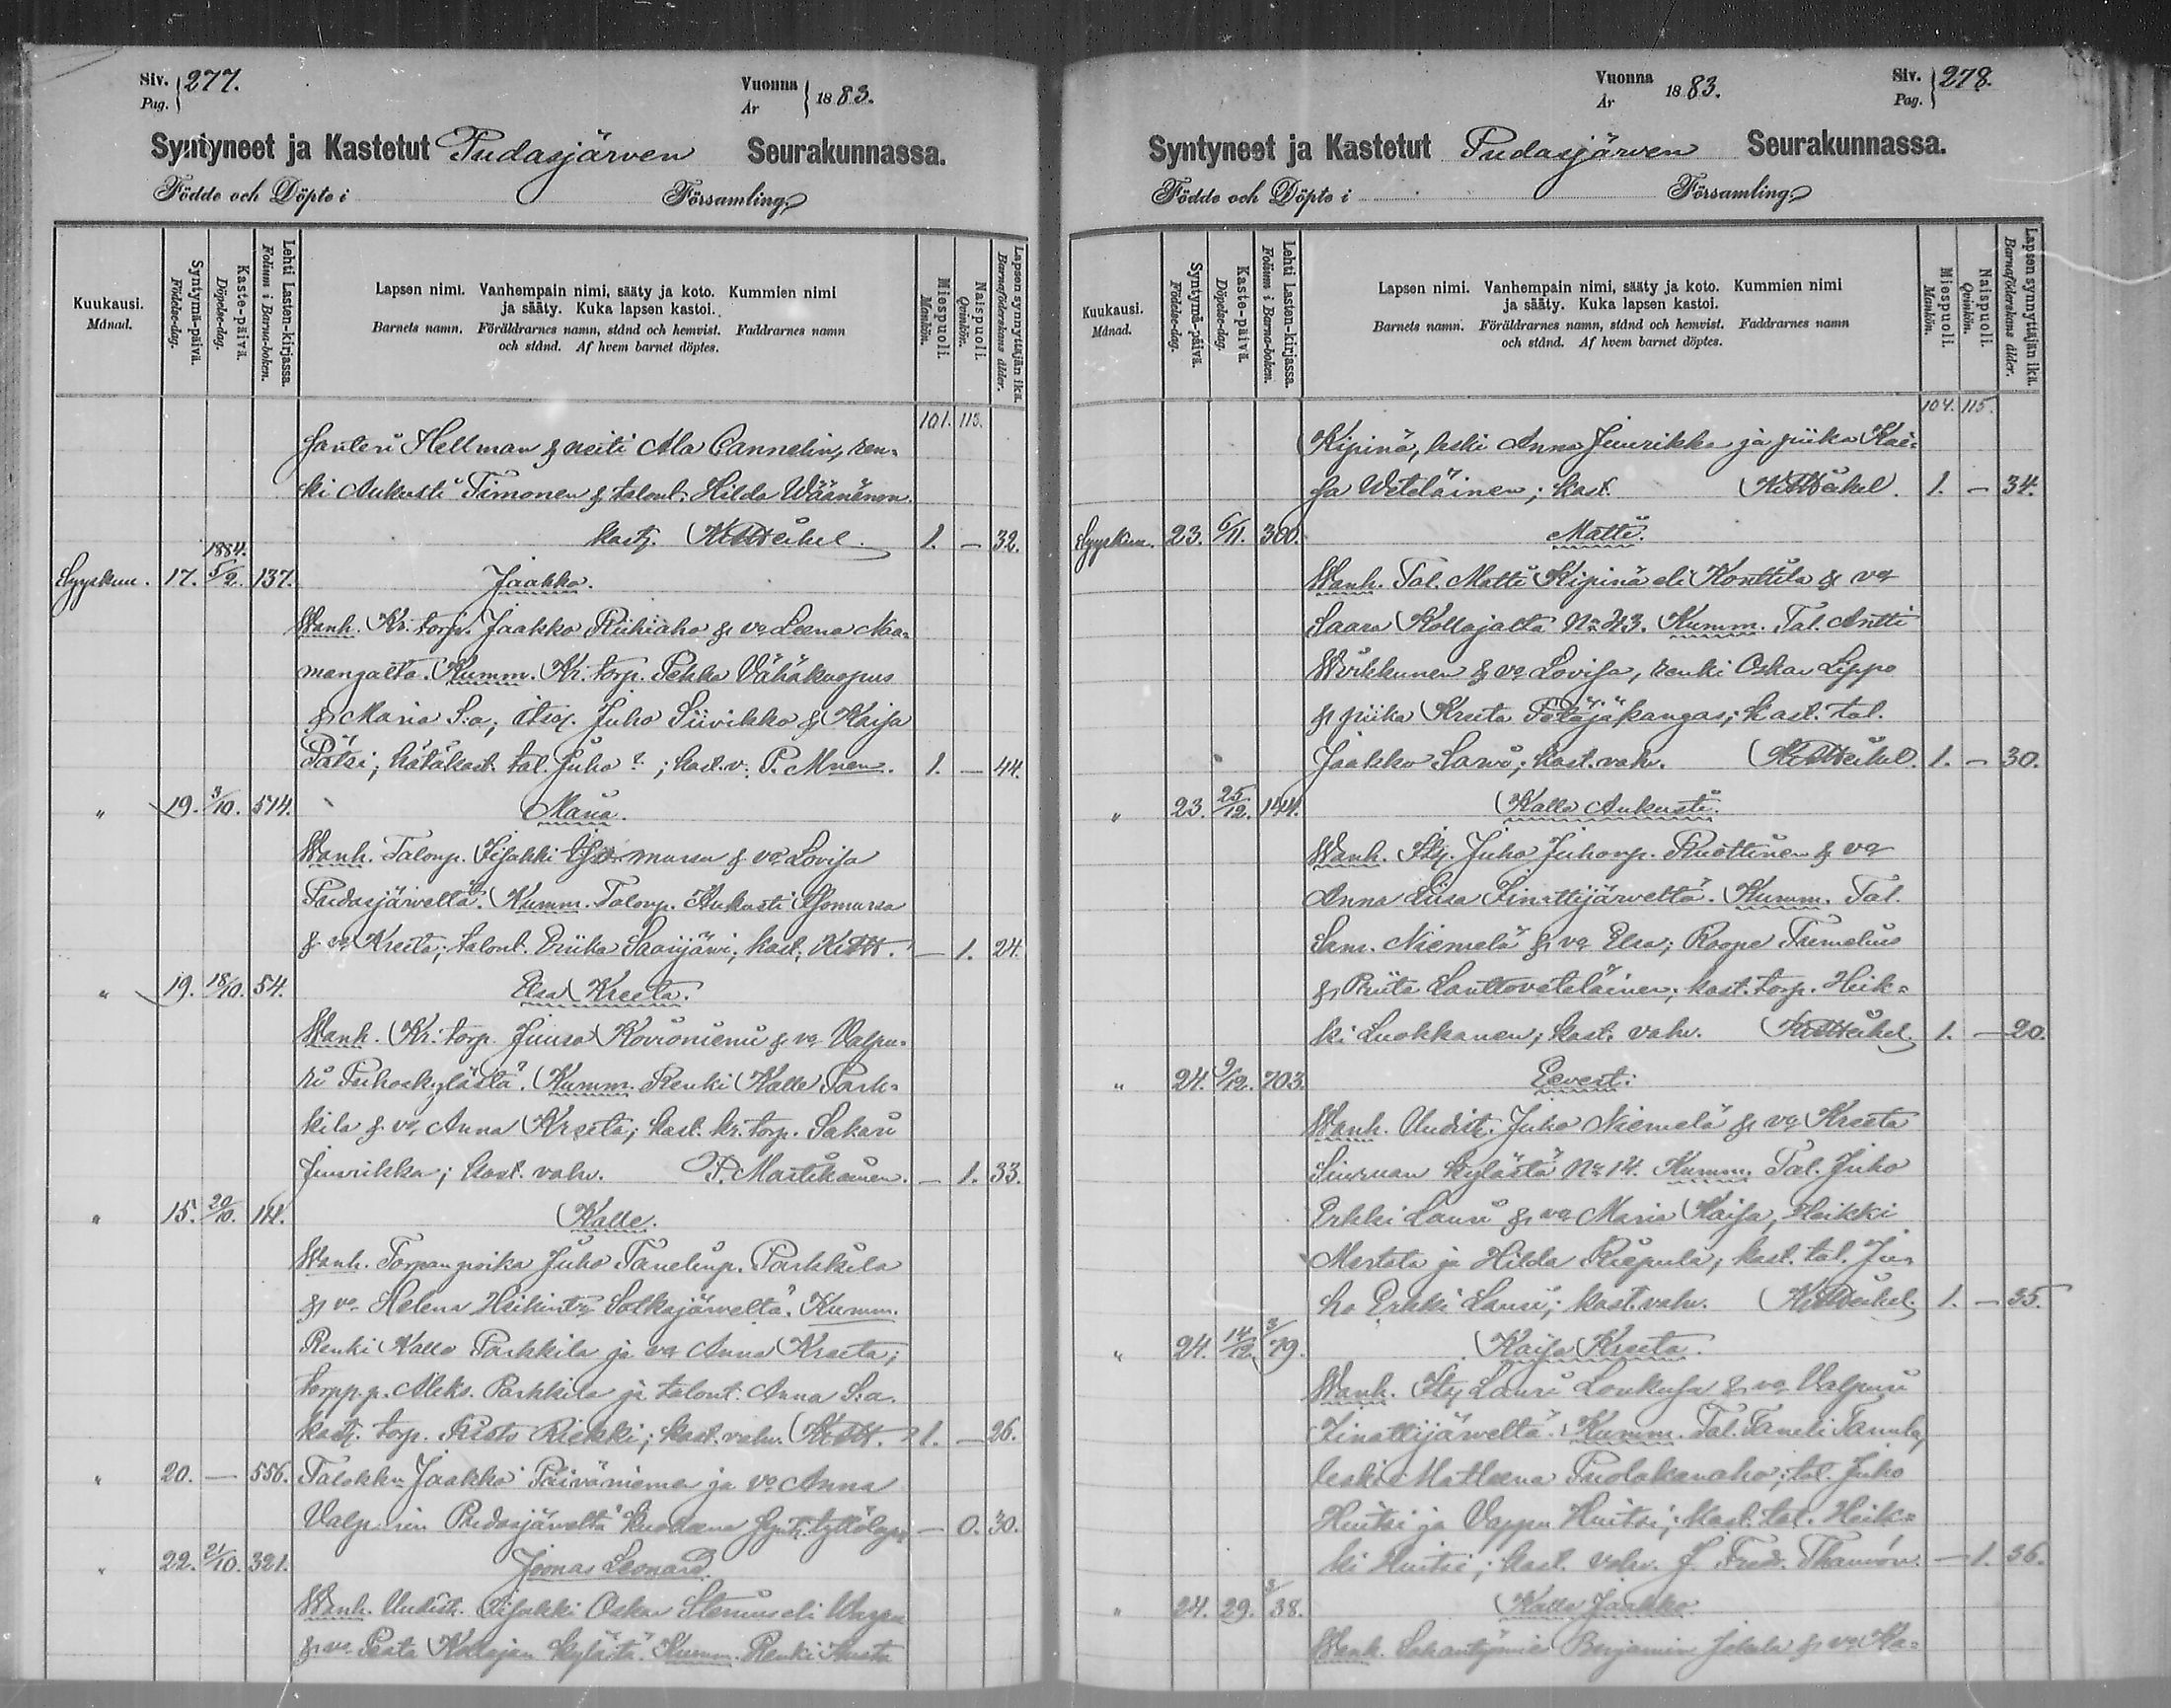 Siv. 277.
Pag.
Vuonna 1883.
År
Syntyneet ja Kastetut Pudasjärven Seurakunnassa.
Födde och Döpte i Församling
Kuukausi.
Månad.
Syntymä-päivä.
Födelse-dag.
Kaste-päivä.
Döpelse-dag.
Lehti Lasten-kirjassa.
Folium i Barna-boken.
Lapsen nimi. Vanhempain nimi, sääty ja koto. Kummien nimi
ja sääty. Kuka lapsen kastoi.
Barnets namn. Föräldrarnes namn, stånd och hemvist. Faddrarnes namn
och stånd. Af hvem barnet döptes.
Miespuoli.
Mankön.
Naispuoli.
Qvinkön.
Lapsen synnyttäjän ikä.
Barnaföderskans ålder.
101. 113.
Santeri Hellman & neiti Ala Cannelin, ren-
ki Aukusti Timonen & talont. Hilda Wäänänen
kast. 1. — 32.
1884.
Syyskuu. 17. 5/2. 137. Jaakko.
Wanh. Kr. torp. Jaakko Riihiaho & vo Leena Naa-
mangalta. Kumm. Kr. torp. Pekka Vähäkuopus
& Maria S:a; itsq. Juho Siivikko & Kaisa
Pätsi; hätäkast. tal. Juho ?; kast. v. P. Mnen. 1. — 44.
" 19. 3/10. 514. Maria.
Wanh. Talonp. Iisakki muraa & vo Lovisa
Pudasjärveltä. Kumm. Talonp. Aukusti
& vo Kreeta; talont. Priika Saarijärvi; kast. — 1. 24.
" 19. 18/10. 54. Elsa Kreeta.
Wanh. Kr. torp. Juusa Koironiemi & vo Valpu-
ri Puhoskylästä. Kumm. Renki Kalle Park-
kila & vo Anna Kreeta; kast. kr. torp. Sakari
Juurikka; kast. vahv. P. Martikainen. — 1. 33.
" 15. 20/10. 14. Kalle.
Wanh. Torpanpoika Juho Tanelinp. Parkkila
& vo Helena Heikint. Sotkajärveltä. Kumm.
Renki Kalle Parkkila ja vo Anna Kreeta;
torpp.p. Aleks. Parkkila ja talont. Anna S:a.
kast. torp. Risto Riekki; kast. vahv. 1. — 26.
" 20. — 556. Talokk. Jaakko Päiväniemen ja vo Anna
Valpurin Pudasjärveltä kuolleena synt. tyttölapsi — 0. 30.
" 22. 21/10. 321. Joonas Leonard.
Wanh. Uudist. Iisakki Oskar Stenius eli
& vo Kollajan kylästä. Kumm. Renki
Vuonna 1883.
År
Siv. 278.
Pag.
Syntyneet ja Kastetut Pudasjärven Seurakunnassa.
Födde och Döpte i Församling
Kuukausi.
Månad.
Syntymä-päivä.
Födelse-dag.
Kaste-päivä.
Döpelse-dag.
Lehti Lasten-kirjassa.
Folium i Barna-boken.
Lapsen nimi. Vanhempain nimi, sääty ja koto. Kummien nimi
ja sääty. Kuka lapsen kastoi.
Barnets namn. Föräldrarnes namn, stånd och hemvist. Faddrarnes namn
och stånd. Af hvem barnet döptes.
Miespuoli.
Mankön.
Naispuoli.
Qvinkön.
Lapsen synnyttäjän ikä.
Barnaföderskans ålder.
104. 115.
Kipinä, leski Anna Juurikka ja piika Kai-
sa Weteläinen; kast. 1. — 34.
Syyskuu. 23. 6/11. 300. Matti.
Wanh. Tal. Matti Kipinä eli Konttila & vo
Saara Kollajalta No 43. Kumm. Tal. Antti
Wirkkunen & vo Lovisa, renki Oskar Lippo
& piika Kreeta Petäjäkangas; kast. tal.
Jaakko Sarvi; kast. vahv. 1. — 30.
" 23. 25/12. 144. Kalle Aukusti.
Wanh. Itq. Juho Juhonp. Ruottinen & vo
Anna Liisa Iinattijärveltä. Kumm. Tal.
Sam. Niemelä & vo Elsa; Roope
& Priita Lanttoveteläinen; kast. torp. Heik-
ki Luokkanen; kast. vahv. 1. — 20.
" 24. 9/12. 703. Eevert.
Wanh. Uudist. Juho Niemelä & vo Kreeta
Siuruan kylästä No 14. Kumm. Tal. Juho
Erkki Lauri & vo Maria Kaisa, Heikki
Mertala ja Hilda Riepula; kast. tal. Ju-
ho Erkki Lauri; kast. vahv. 1. — 35.
" 24. 14/12. 3/79. Kaisa Kreeta.
Wanh. Itq Lauri Loukusa & vo Valpuri
Iinattijärveltä. Kumm. Tal. Taneli Tannila,
leski Matleena Puolakanaho; tal. Juho
Hiitsi ja Vappu Hiitsi; kast. tal. Heik-
ki Hiitsi; kast. vahv. J. Fred. Thauvón. — 1. 36.
" 24. 29. 3/38. Kalle Jaakko
Wanh. Sahantyömies Benjamin Jokela & vo Ka-